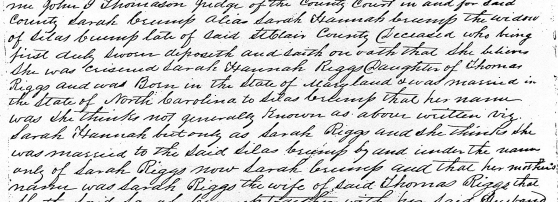 me John I Thomason Judge of the County Court in and for said
County Sarah Crump alias Sarah Hannah Crump the widow
of Silas Crump late of said St Clair County Deceased who being
first duly sworn deposeth and saith on oath that she believes
she was crisened Sarah Hannah Riggs Daughter of Thomas
Riggs and was Born in the State of Maryland & was married in
the State of North Carolina to Silas Crump that her name
was she thinks not generally known as above written viz
Sarah Hannah but only as Sarah Riggs and she thinks she
was married to the said Silas Crump by and under the name
only of Sarah Riggs now Sarah Crump and that her mother's
name was Sarah Riggs the wife of said Thomas Riggs that
with her said Husband